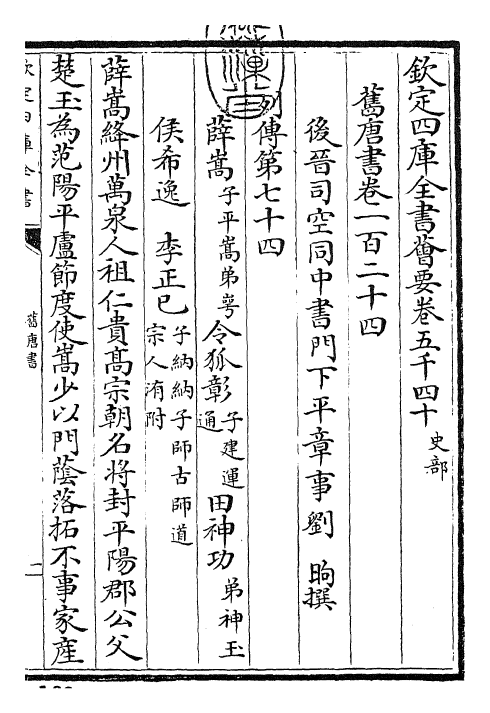 欽定四庫全書薈要卷五千四十 史部
舊唐書卷一百二十四
後晉司空同中書門下平章事劉 昫撰
列傳第七十四
薛嵩 子平 嵩弟萼 令狐彰 子建 運 通 田神功 弟神玉
侯希逸 李正己 子納 納子師古 師道 宗人洧附
薛嵩絳州萬泉人祖仁貴高宗朝名將封平陽郡公父
楚玉為范陽平盧節度使嵩少以門蔭落拓不事家産
欽定四庫全書
舊唐書